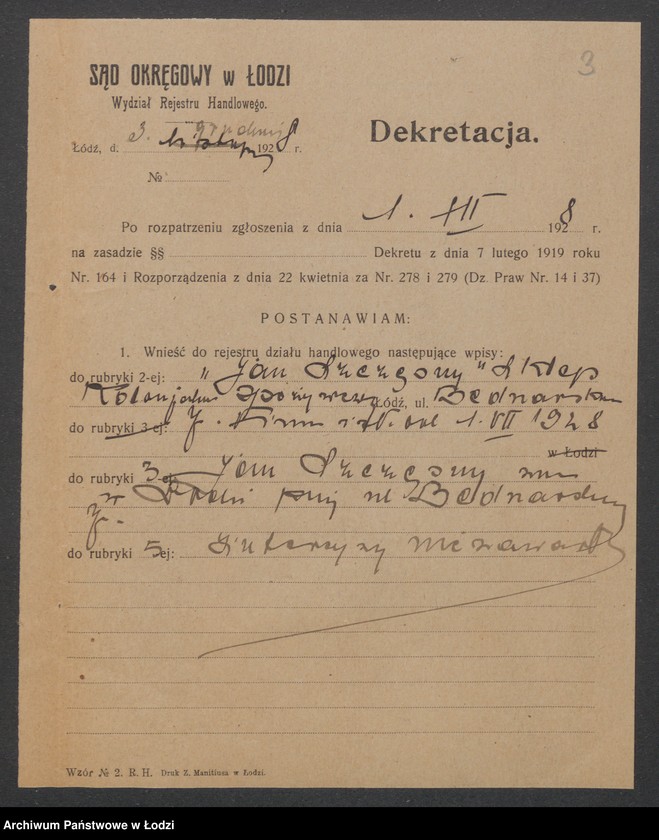 3
SĄD OKRĘGOWY w ŁODZI
Wydział Rejestru Handlowego.
Dekretacja.
Łódź, d. 3. grudnia 1928 r.
№
Po rozpatrzeniu zgłoszenia z dnia 1. XII 1928 r.
na zasadzie §§ Dekretu z dnia 7 lutego 1919 roku
Nr. 164 i Rozporządzenia z dnia 22 kwietnia za Nr. 278 i 279 (Dz. Praw Nr. 14 i 37)
POSTANAWIAM:
1. Wnieść do rejestru działu handlowego następujące wpisy:
do rubryki 2-ej: "Jan Szczęsny" Sklep
Kolonjalno Spożywczy Łódź, ul. Bednarska
do rubryki 3-ej: 7. Firma istn. od 1. VII 1928
w Łodzi
do rubryki 3-ej Jan Szczęsny zam
w Łodzi przy ul Bednarskiej
7.
do rubryki 5ej: Intercyzy nie zawarł
Wzór № 2. R. H. Druk Z. Manitiusa w Łodzi.
Archiwum Państwowe w Łodzi